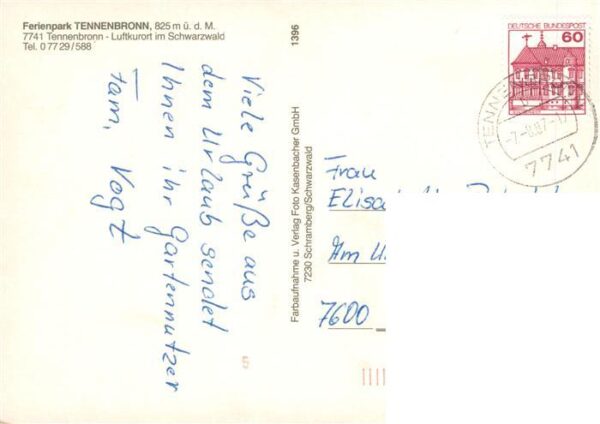 Ferienpark TENNENBRONN, 825 m ü. d. M.
7741 Tennenbronn - Luftkurort im Schwarzwald
Tel. 0 77 29 / 588
Viele Grüße aus
dem Urlaub sendet
Ihnen ihr Gartennutzer
Fam. Vogt
1396
Farbaufnahme u. Verlag Foto Kasenbacher GmbH
7230 Schramberg/Schwarzwald
DEUTSCHE BUNDESPOST
60
7741
Frau
Am
7600